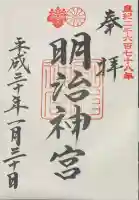 皇紀二千六百七十八年
奉拝
明治神宮
平成三十年一月三十日